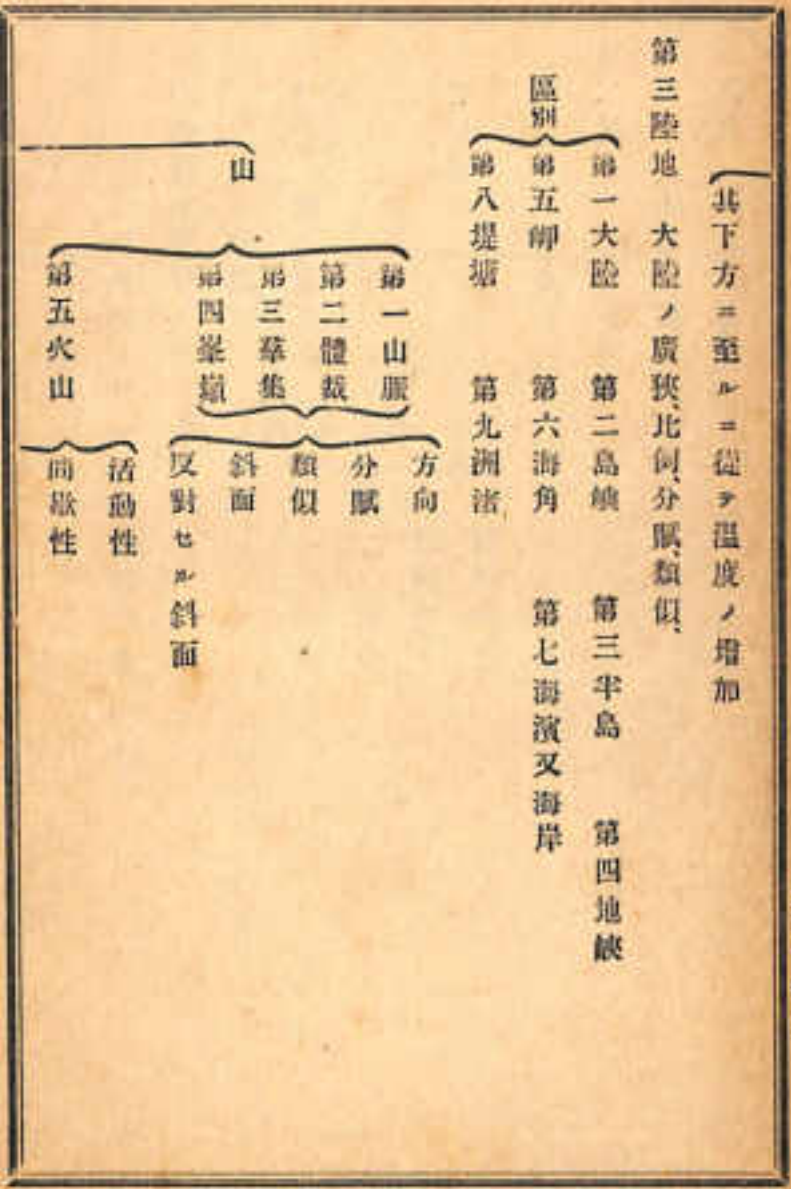 其下方ニ至ルニ從テ溫度ノ增加
第三陸地　大陸ノ廣狹、比例、分賦、類似、
區別
第一大陸　第二島嶼　第三半島　第四地峽
第五岬　第六海角　第七海濱又海岸
第八堤塘　第九洲渚
山
第一山脈
第二體裁
第三羣集
第四峯巓
方向
分賦
類似
斜面
反對セル斜面
第五火山
活動性
間歇性